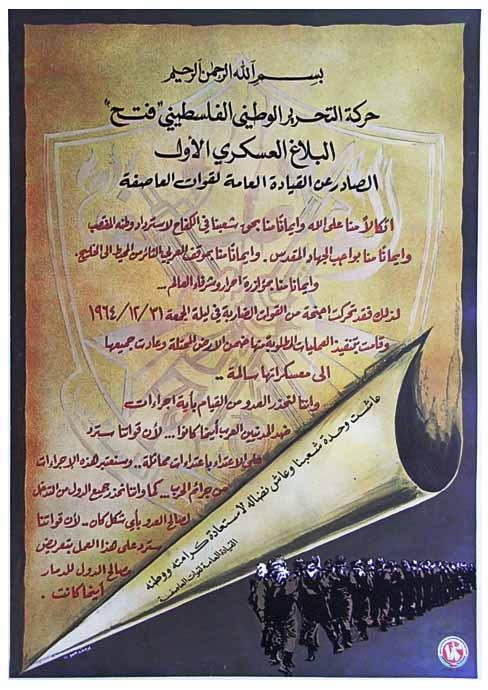 بسم الله الرحمن الرحيم
حركة التحرير الوطني الفلسطيني "فتح"
البلاغ العسكري الأول
الصادر عن القيادة العامة لقوات العاصفة
اتكالاً منا على الله وايمانًا منا بحق شعبنا في الكفاح لاسترداد وطنه المغتصب
وايمانًا منا بواجب الجهاد المقدس . وايمانًا منا بموقف العربي الثائر من المحيط الى الخليج.
وايمانًا منا بمؤازرة احرار وشرفاء العالم ...
لذلك فقد تحركت اجنحة من القوات الضاربة في ليلة الجمعة ١٩٦٤/١٢/٣١
وقامت بتنفيذ العمليات المطلوبة منها ضمن الارض المحتلة وعادت جميعها
الى معسكراتها سالمة ..
واننا لنحذر العدو من القيام بأية اجراءات
ضد المدنيين العرب أينما كانوا ... لأن قواتنا سترد
على الاعتداء باعتداءات مماثلة .. وستعتبر هذه الاجراءات
من جرائم الحرب ... كما واننا نحذر جميع الدول من التدخل
لصالح العدو بأي شكل كان .. لأن قواتنا
سترد على هذا العمل بتعريض
مصالح الدول للدمار
أينما كانت .
عاشت وحدة شعبنا وعاش نضاله لاستعادة كرامته ووطنه
القيادة العامة لقوات العاصفة